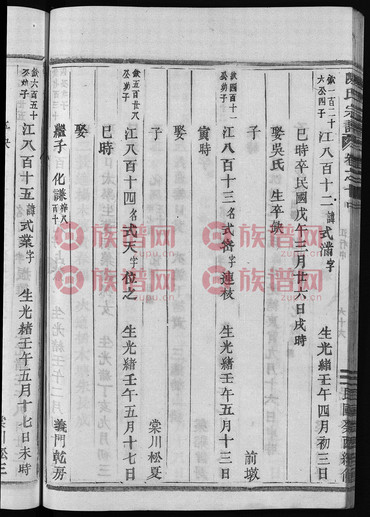 欽一百二十
六公四子
江八百十二諱式滿字
生光緒壬午四月初三日
巳時卒民國戊午三月廿六日戌時
娶吳氏 生卒缺
子
前墩
欽四百十一
公幼子
江八百十三名式富字連枝
生光緒壬午五月十三日
寅時
娶
子
棠川松夏
欽五百廿八
公幼子
江八百十四名式天字位之
生光緒壬午五月十七日
巳時
娶
繼子化謙
義門乾房
欽六百五十
江八百十五諱式業字
生光緒壬午五月十七日未時
棠川松三
族谱网
zupu.cn